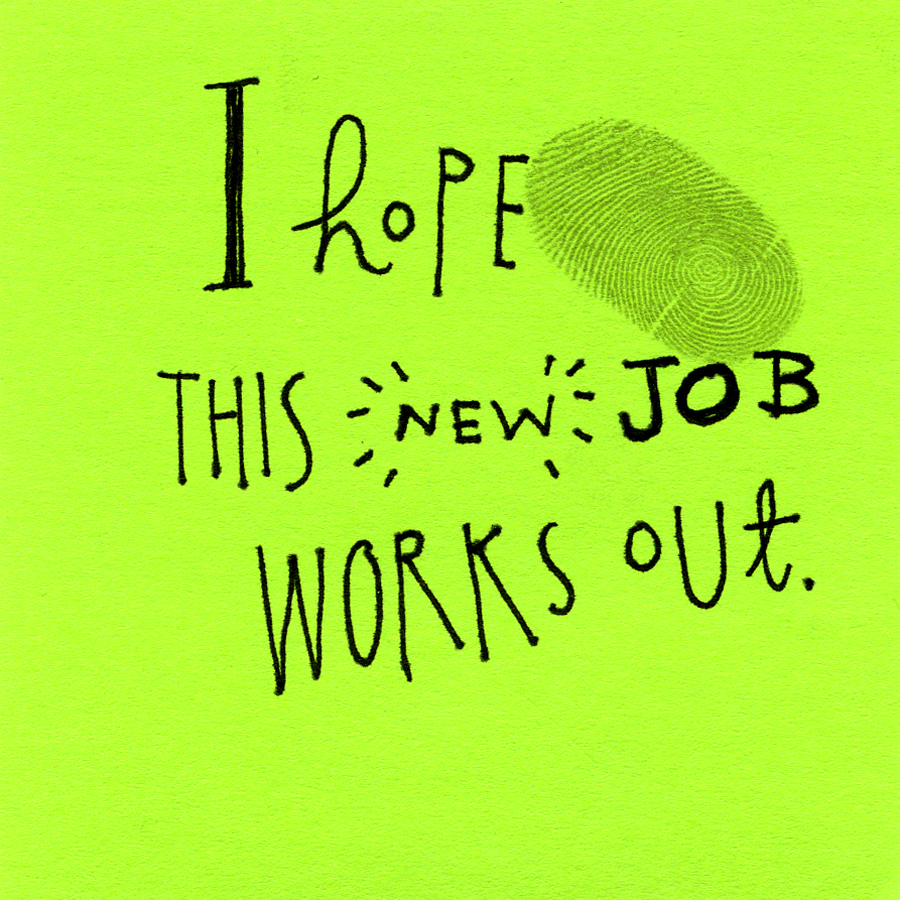 I hOPE
THIS NEW JOB
WORKS OUt.